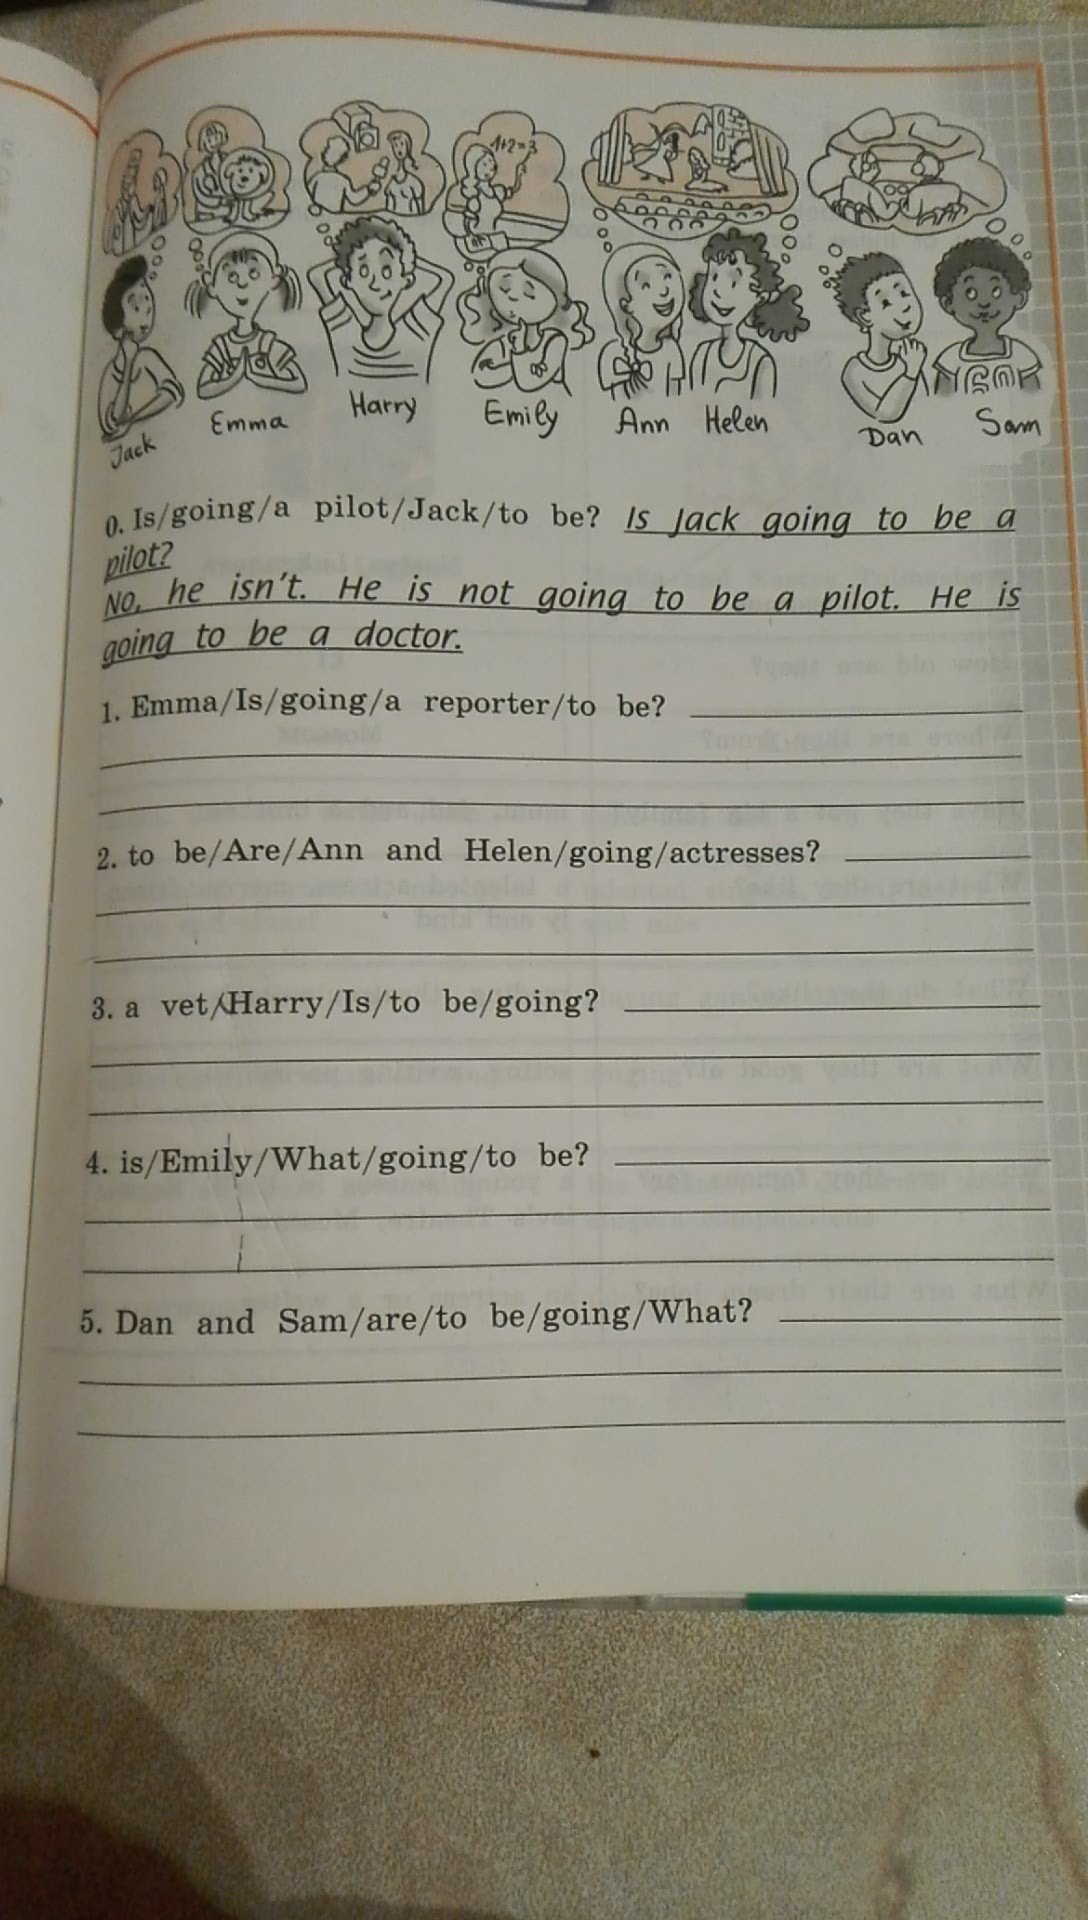 1+2=3
Jack
Emma
Harry
Emily
Ann
Helen
Dan
Sam
0. Is/going/a pilot/Jack/to be? Is Jack going to be a
pilot?
No, he isn't. He is not going to be a pilot. He is
going to be a doctor.
1. Emma/Is/going/a reporter/to be?
2. to be/Are/Ann and Helen/going/actresses?
3. a vet/Harry/Is/to be/going?
4. is/Emily/What/going/to be?
5. Dan and Sam/are/to be/going/What?